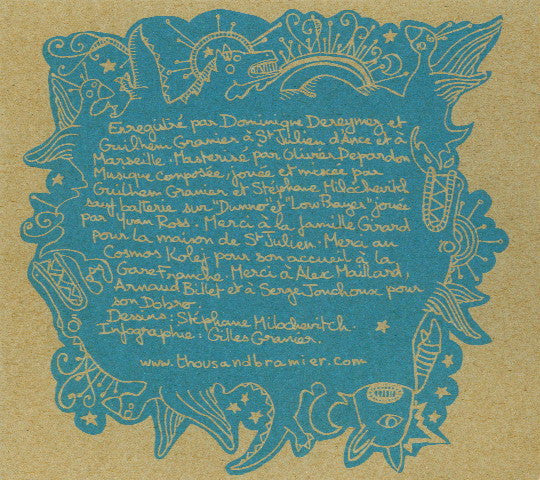 Enregistré par Dominique Dereymez et
Guilhem Granier à St Julien d'Ance et à
Marseille. Masterisé par Olivier Depardon
Musique composée, jouée et mixée par
Guilhem Granier et Stéphane Milochevitch
sauf batterie sur "Dunno" et "Low Bayer" jouée
par Yvan Ross. Merci à la famille Girard
pour la maison de St Julien. Merci au
Cosmos Kolej pour son accueil à la
Gare Franche. Merci à Alex Maillard,
Arnaud Billet et à Serge Jouchoux pour
son Dobro.
Dessins : Stéphane Milochevitch.
Infographie : Gilles Granier.
www.thousandbramier.com